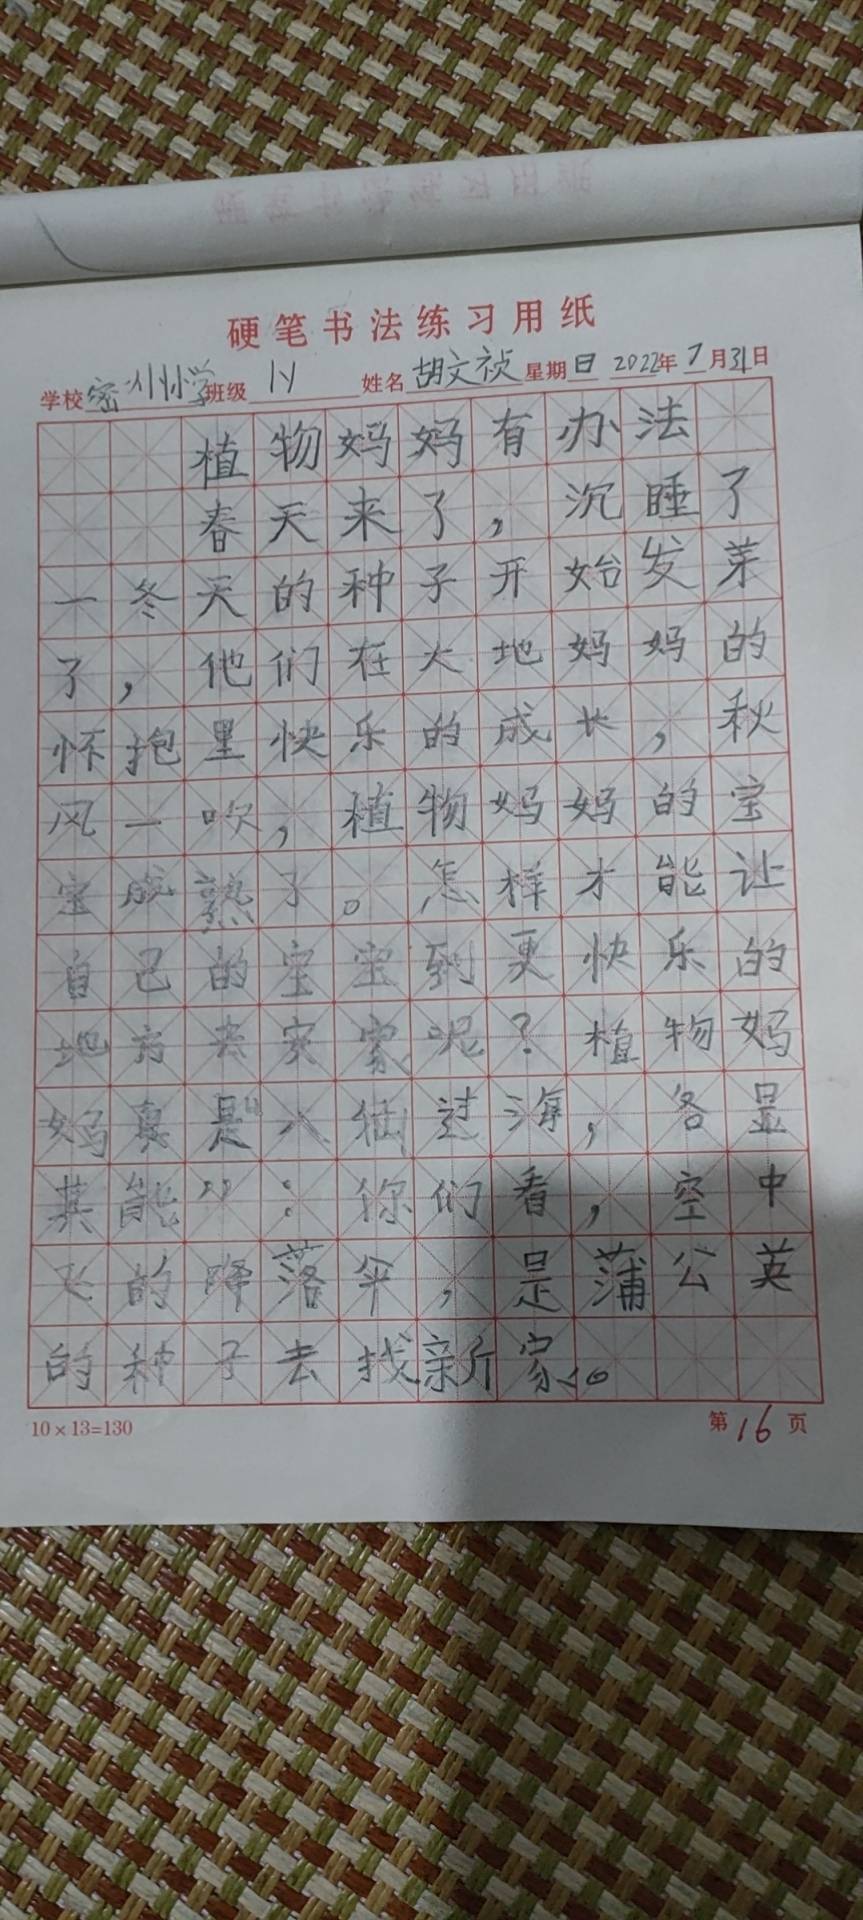 硬笔书法练习用纸
学校 密州小学 班级 姓名 胡文祯 星期 日 2022年 7月31日
植物妈妈有办法
春天来了，沉睡了
一冬天的种子开始发芽
了，他们在大地妈妈的
怀抱里快乐的成长，秋
风一吹，植物妈妈的宝
宝成熟了。怎样才能让
自己的宝宝到更快乐的
地方去安家呢？植物妈
妈真是“八仙过海，各显
其能”：你们看，空中
飞的降落伞，是蒲公英
的种子去找新家。
10×13=130
第16页